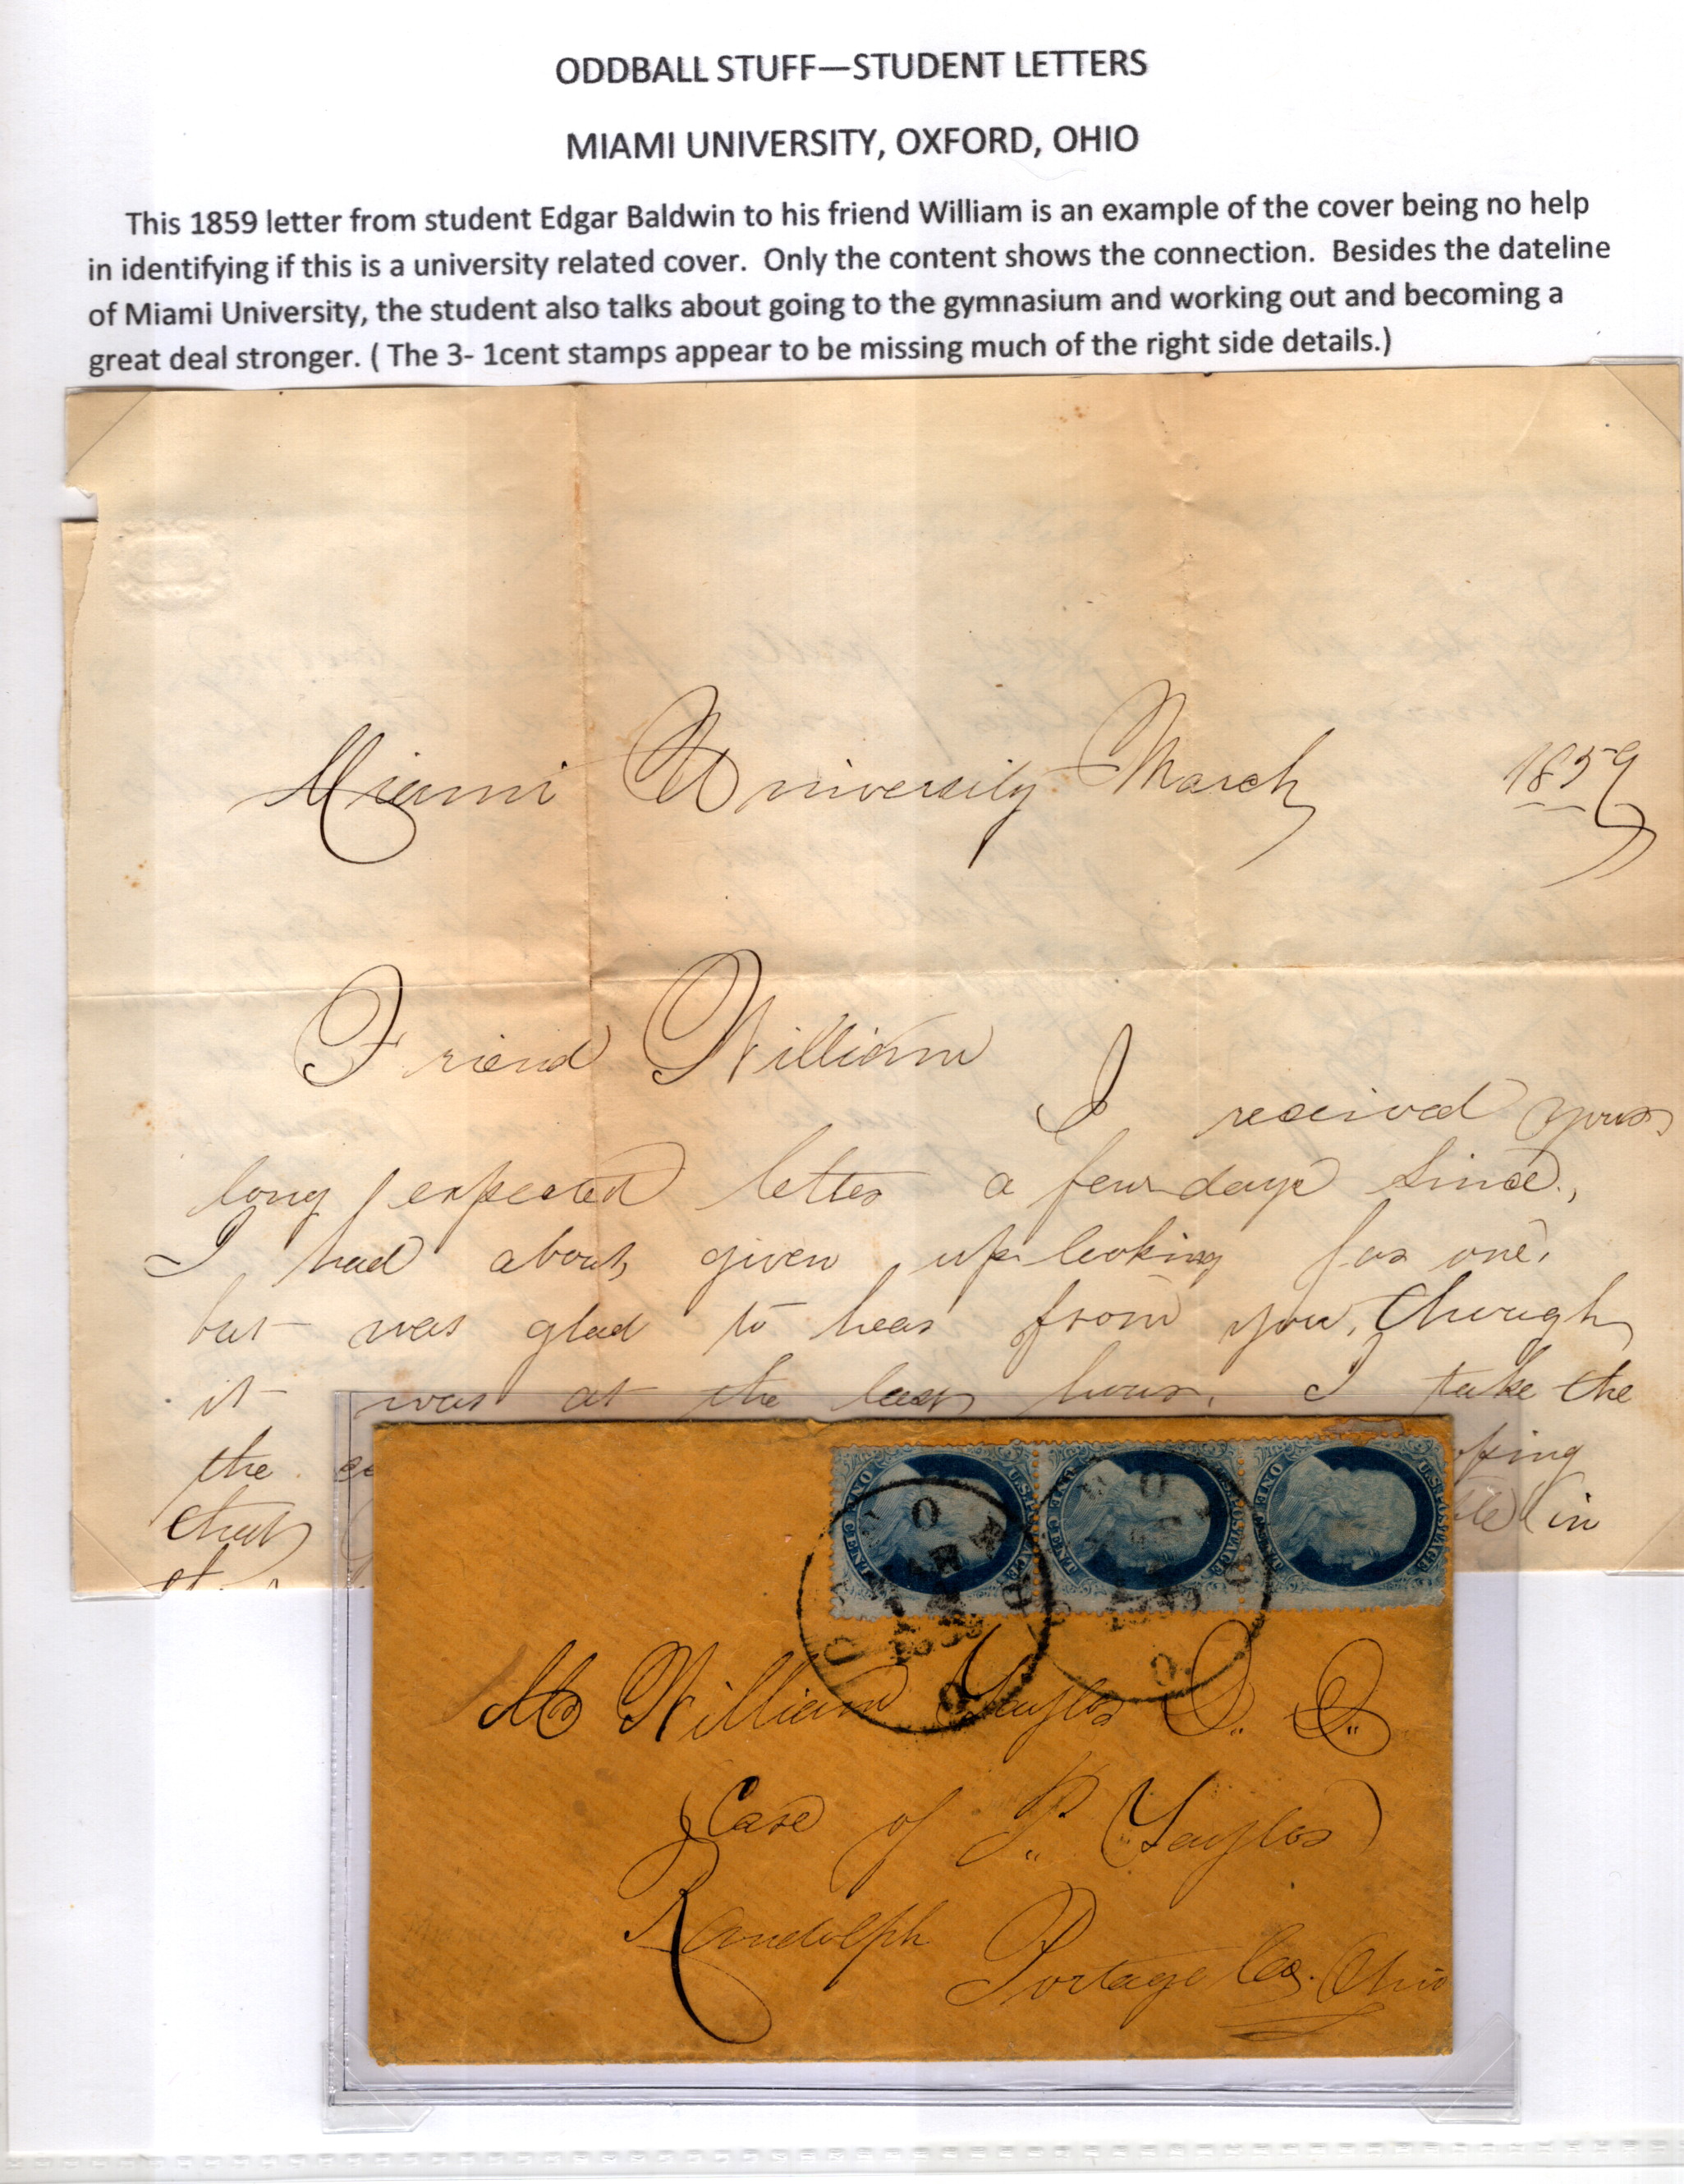 ODDBALL STUFF—STUDENT LETTERS
MIAMI UNIVERSITY, OXFORD, OHIO
This 1859 letter from student Edgar Baldwin to his friend William is an example of the cover being no help
in identifying if this is a university related cover. Only the content shows the connection. Besides the dateline
of Miami University, the student also talks about going to the gymnasium and working out and becoming a
great deal stronger. ( The 3- 1cent stamps appear to be missing much of the right side details.)
Miami University March 1859
Friend William
I received your
long expected letter a few days since,
I had about given up looking for one,
but was glad to hear from you, though
it was at the last hour. I take the
the
that in
U.S. POSTAGE
ONE CENT
U.S. POSTAGE
ONE CENT
U.S. POSTAGE
ONE
MAR
1859
O
Mr William Taylor
Care of P. Taylor
Randolph Portage Co. Ohio